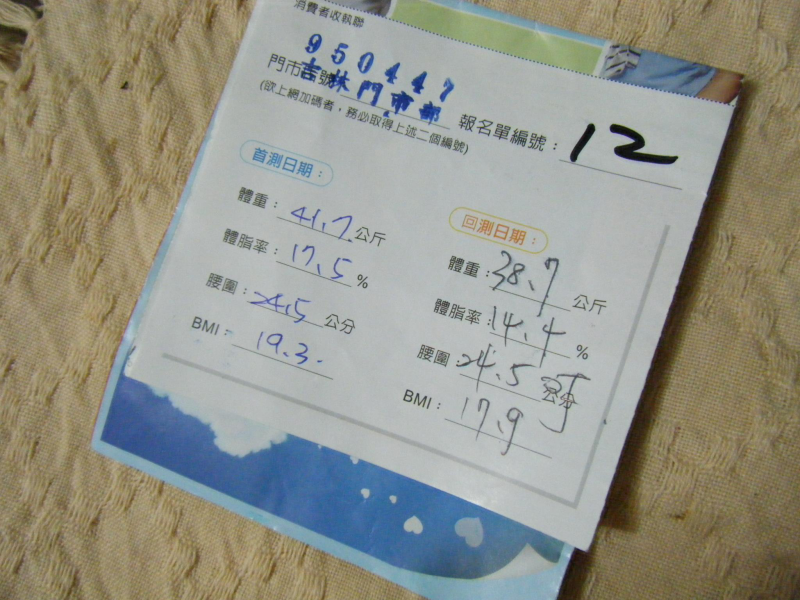 消費者收執聯
950447
門市店號：吉林門市部
(欲上網加碼者，務必取得上述二個編號)
報名單編號：12
首測日期：
體重：41.7公斤
體脂率：17.5%
腰圍：24.5公分
BMI：19.3
回測日期：
體重：38.7公斤
體脂率：14.4%
腰圍：24.5公分吋
BMI：17.9